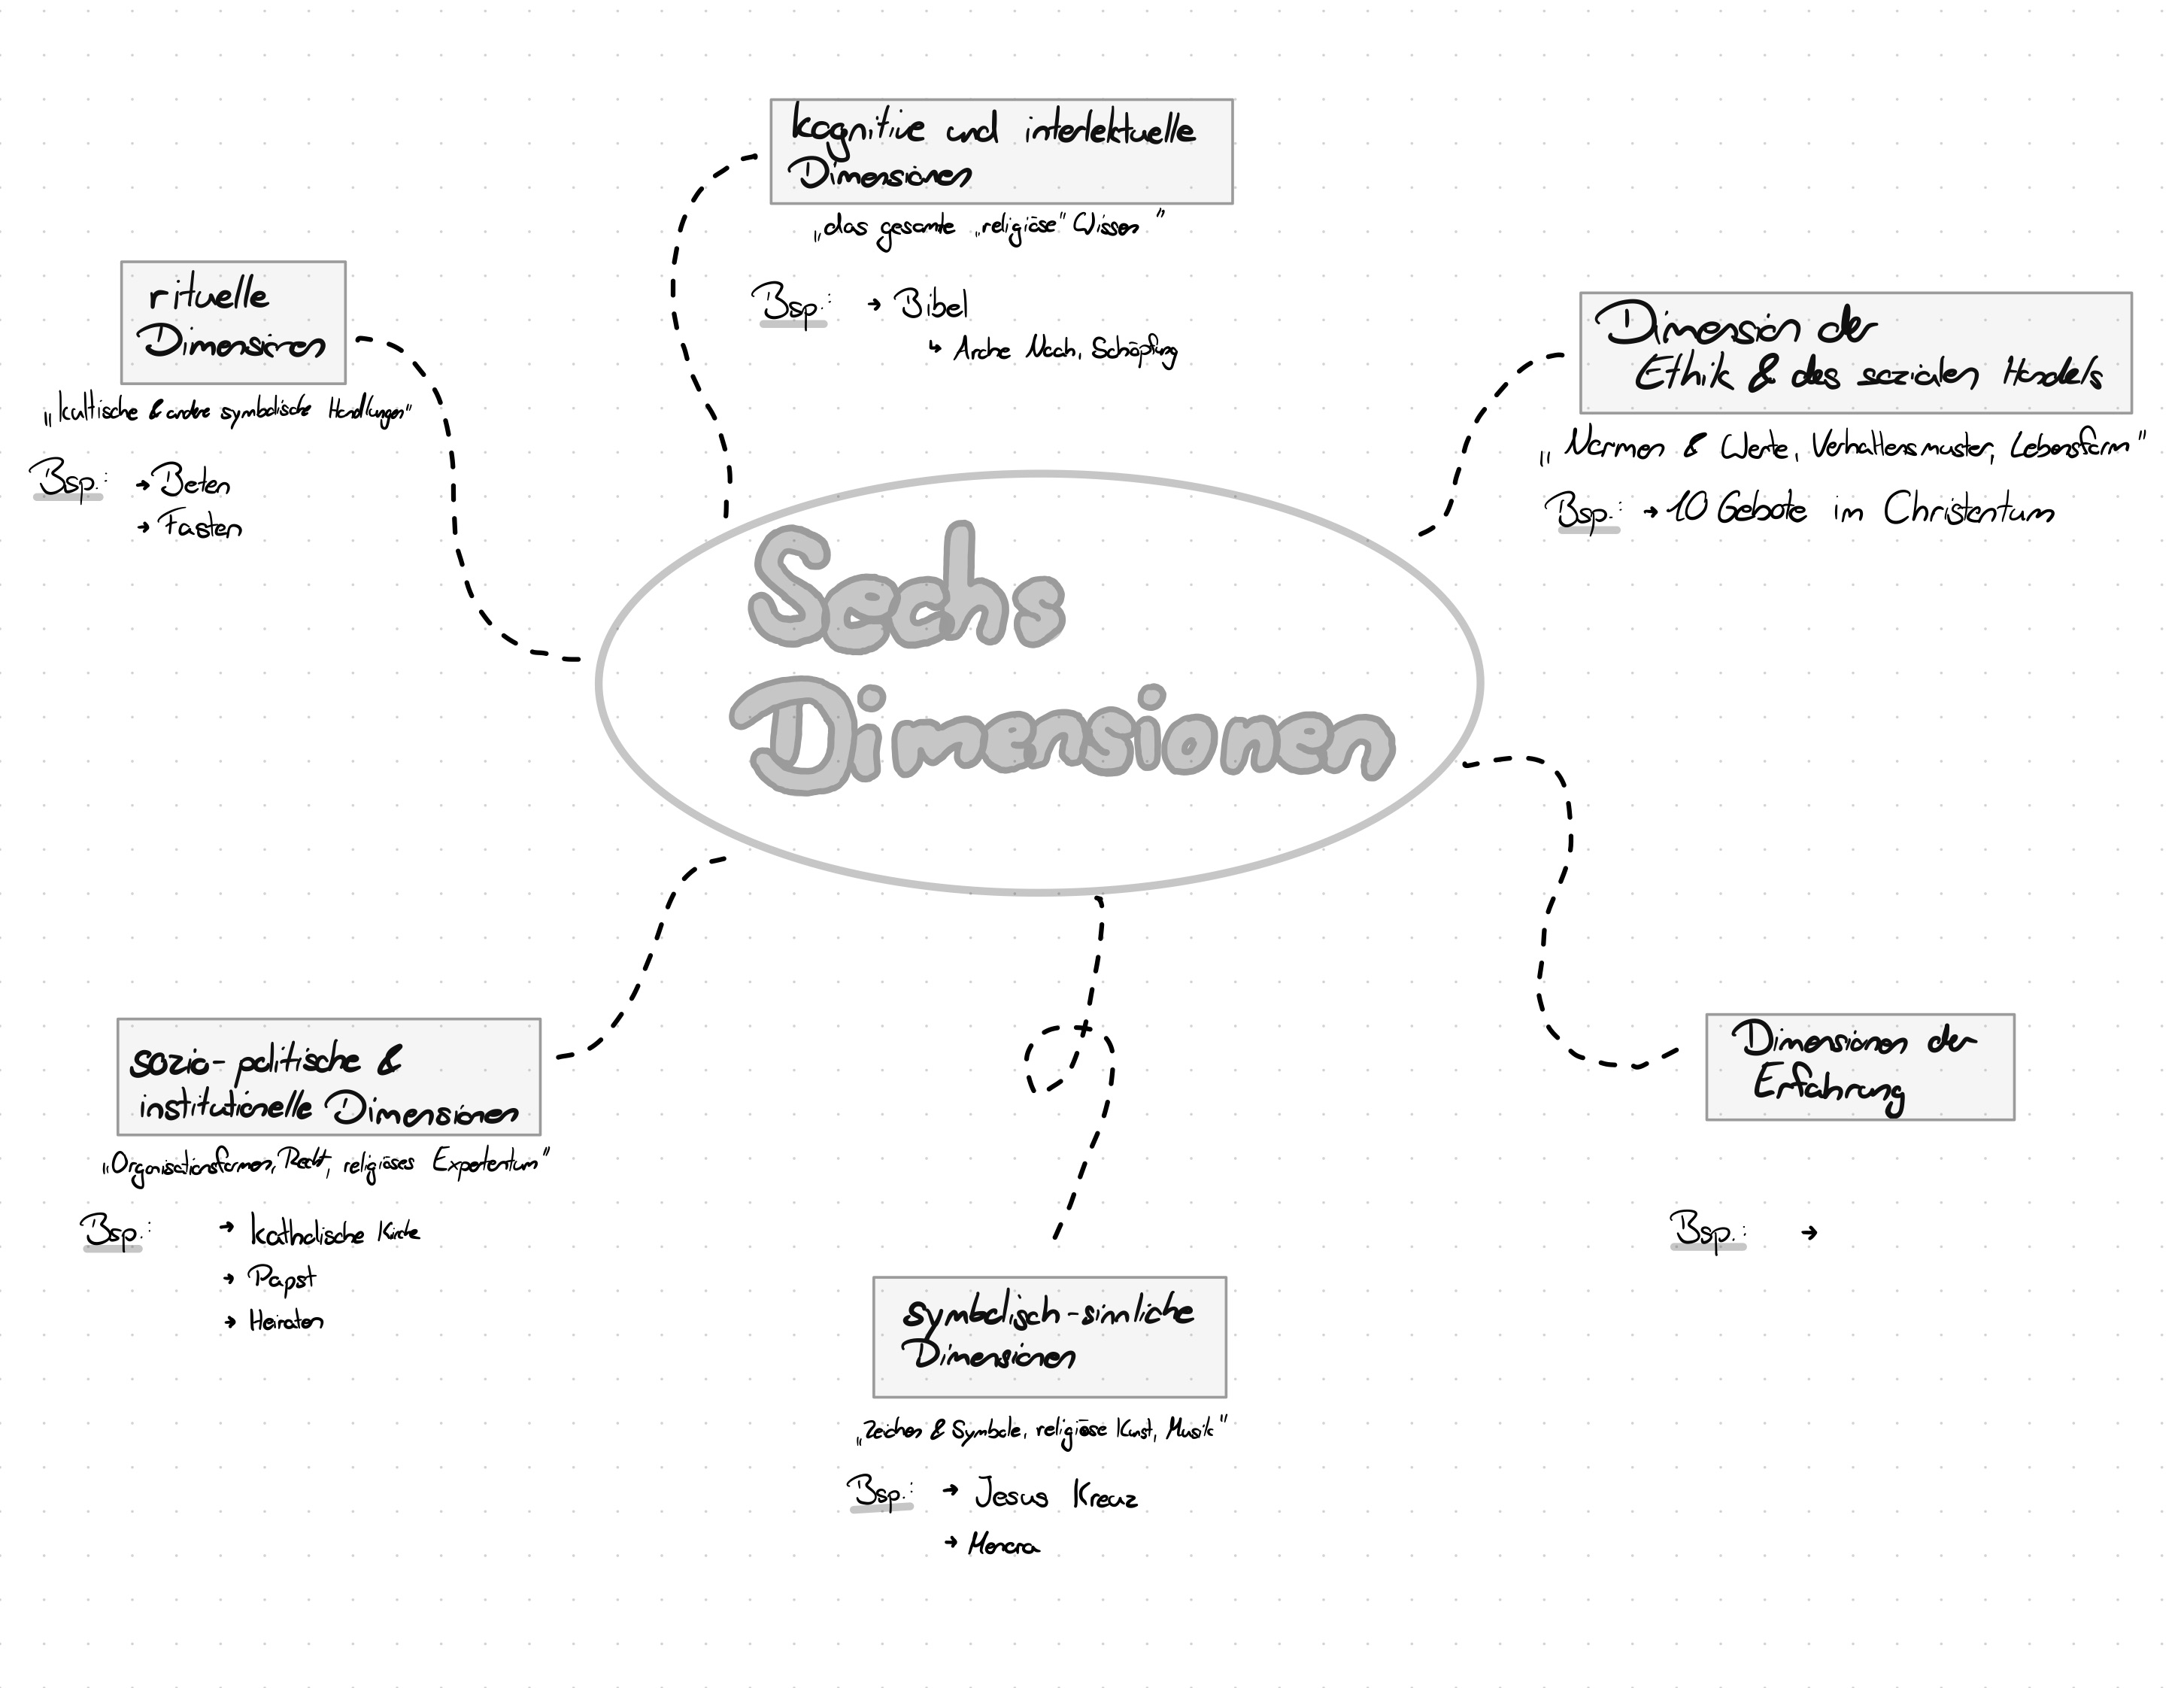 kognitive und interlektuelle
Dimensionen
„das gesamte „religiöse" Wissen"
Bsp.: → Bibel
↳ Arche Noah, Schöpfung
rituelle
Dimensionen
„kultische & andere symbolische Handlungen"
Bsp.: → Beten
→ Fasten
Dimension der
Ethik & des sozialen Handels
„Normen & Werte, Verhaltensmuster, Lebensform"
Bsp.: → 10 Gebote im Christentum
Sechs
Dimensionen
sozio-politische &
institutionelle Dimensionen
„Organisationsformen, Recht, religiöses Expertentum"
Bsp.: → katholische Kirche
→ Papst
→ Heiraten
Dimensionen der
Erfahrung
Bsp.: →
symbolisch-sinnliche
Dimensionen
„Zeichen & Symbole, religiöse Kunst, Musik"
Bsp.: → Jesus Kreuz
→ Menora